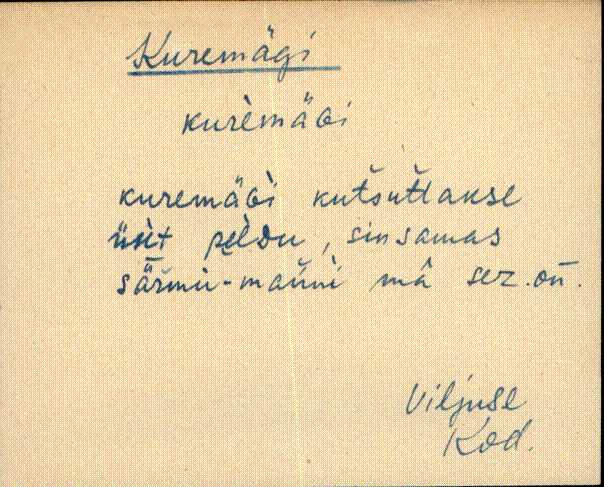 Kuremägi
kurèmäGi
kuremäGì kutšuttakse
üit peldu, sinsamas
särmü-manni mâ sez. on.
Viljuse
Kod.